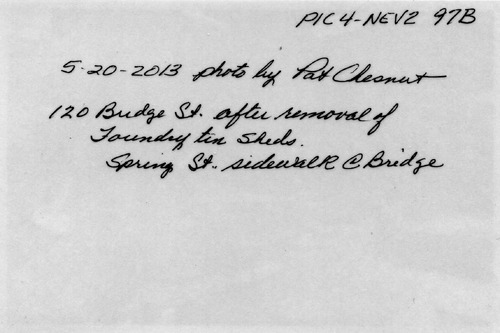 PIC 4-NEV2 97B
5-20-2013 photo by Pat Chesnut
120 Bridge St. after removal of
Foundry tin sheds.
Spring St. sidewalk @ Bridge